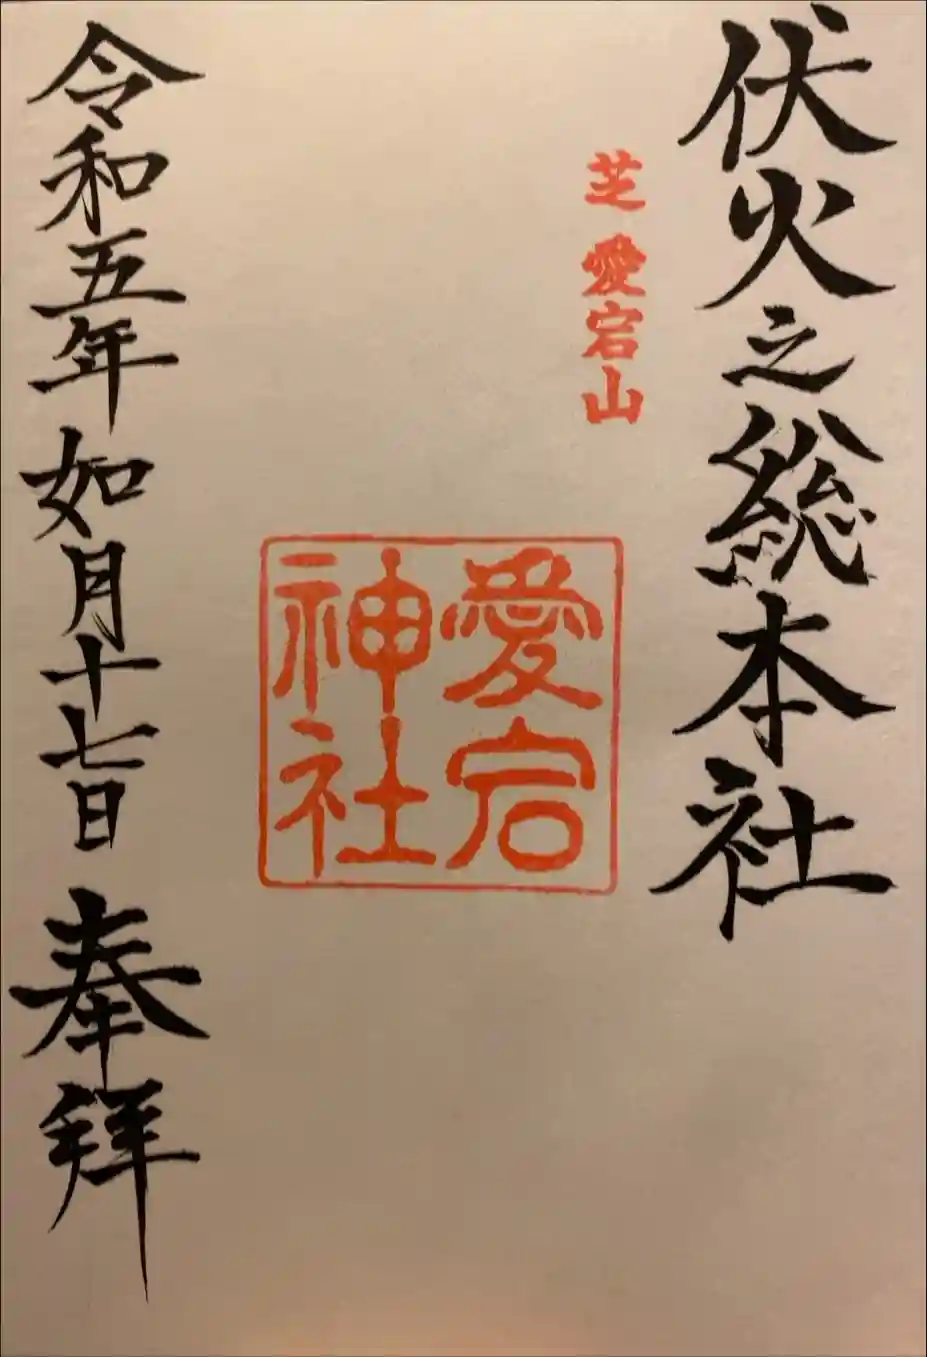 伏火之総本社
芝 愛宕山
愛宕
神社
令和五年如月十七日 奉拝